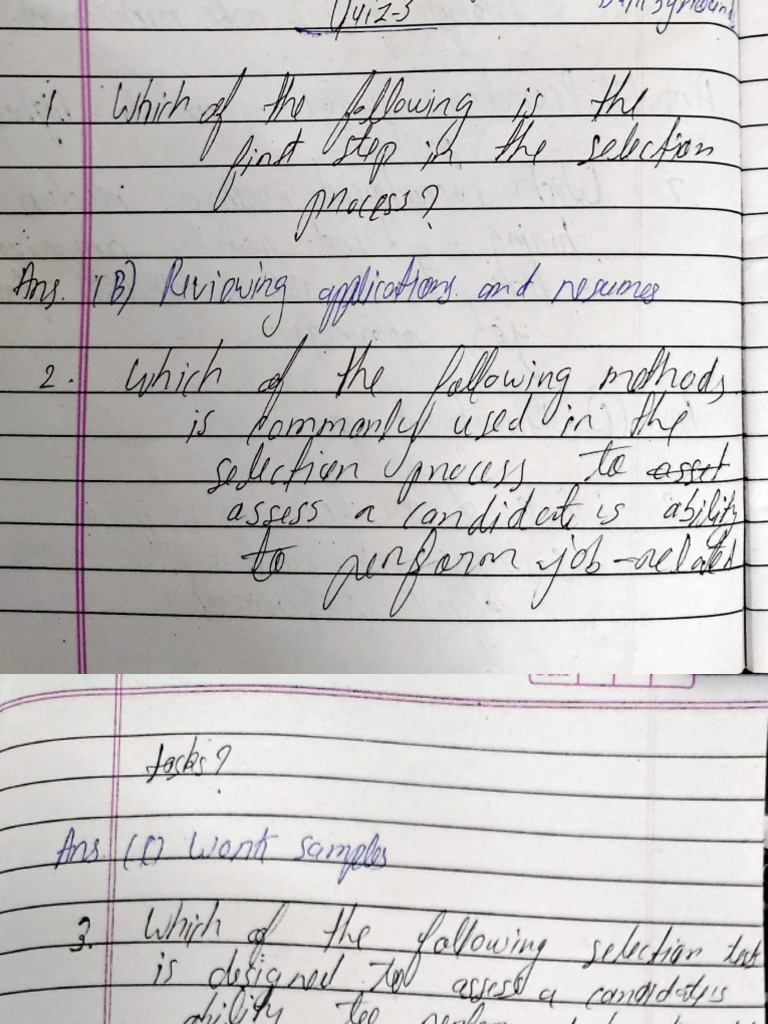 Quiz-3
1. Which of the following is the
first step in the selection
process?
Ans. (B) Reviewing applications and resumes
2. Which of the following methods
is commonly used in the
selection process to asset
assess a candidate is ability
to perform job-related
tasks?
Ans. (C) Work samples
3. Which of the following selection test
is designed to assess a candidate is
ability too